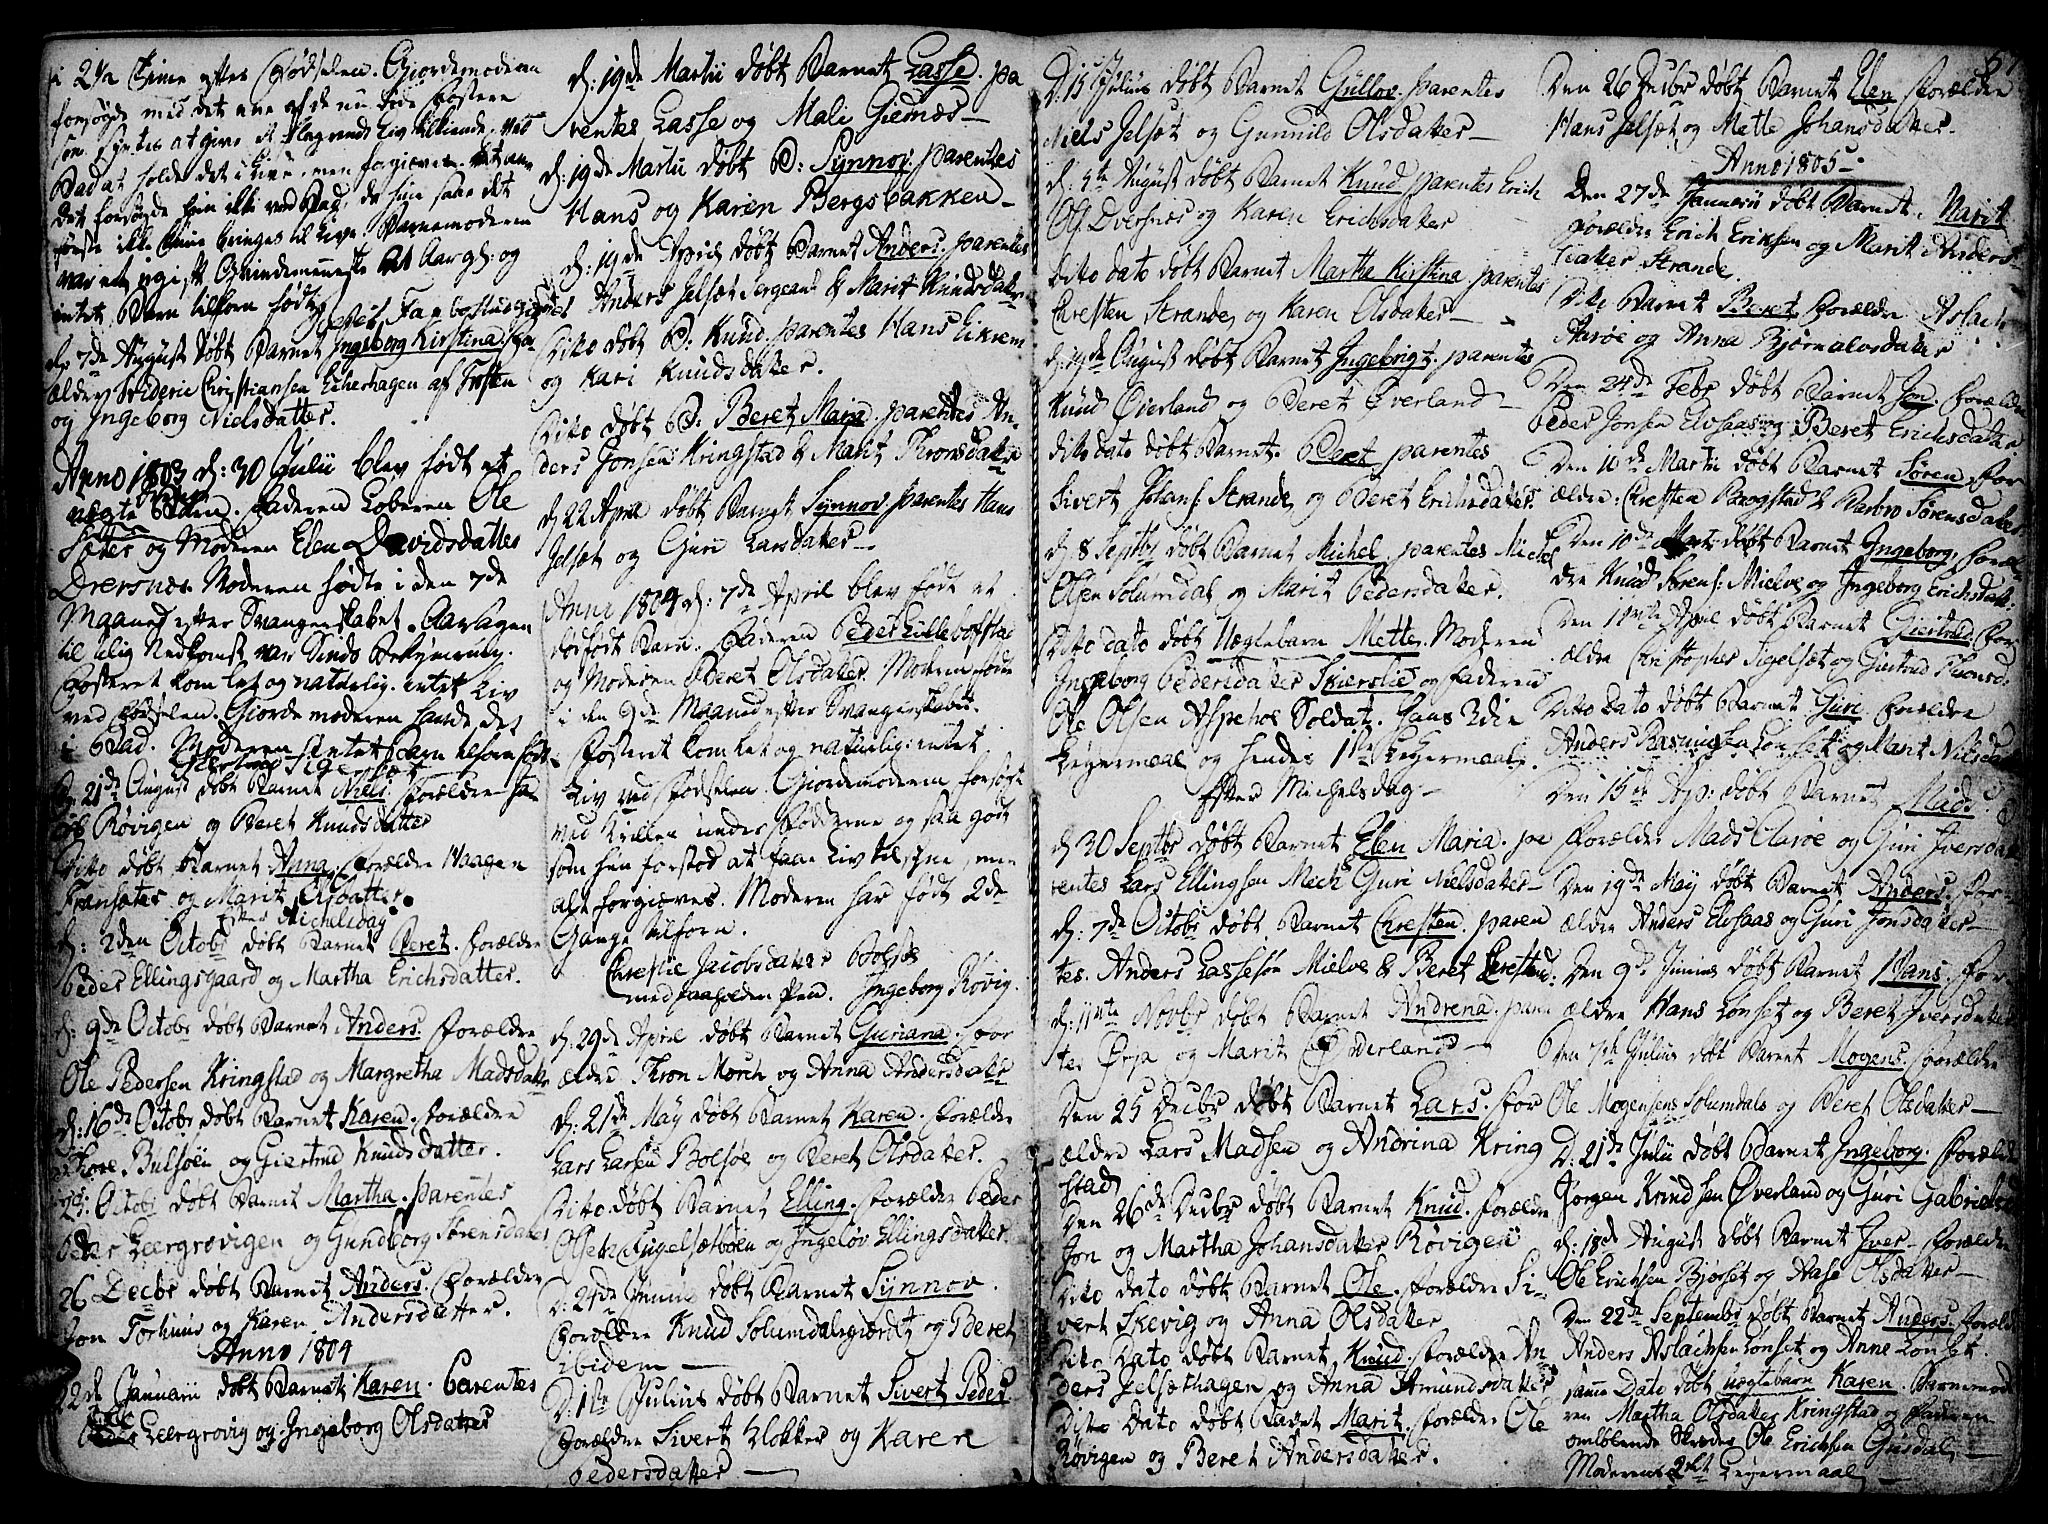 i 2 1/2 Time efter Fødselen. Giordemoderen
forsøgte med det ene af de nu
at give et
Bad at holde det i Live, men forgiæves.
Det forsøgde hun ikke ved Bad, da hun saae det
første ikke kunne bringes til Live. Barnemoderen
var et ugift Qvindemenneske 21 Aar gl: og
intet Barn tilforn født
d: 7de August døbt Barnet Ingeborg Kirstina. For
ældre Frideric Christiansen Eicherhagen af
og Ingeborg Nielsdatter.
Anno 1803 d: 30 Julii blev født et
uægte Barn. Faderen Løberen Ole
og Moderen Elen Davidsdatter
Dversnes. Moderen fødte i den 7de
Maaned efter Svangerskabet. Aarsagen
til tilig Nedkomst var Sinds Bekymring.
Fosteret kom let og naturlig. intet Liv
ved Fødselen. Giordemoderen havde det
i Bad. Moderen intet Barn tilforn født
d: 21de August døbt Barnet Niels. Forældre
Røvigen og Beret Knudsdatter
Dito døbt Barnet Anna. Forældre Haagen
og Marit Olsdatter.
Efter Michelsdag
d: 2den Octobr døbt Barnet Beret. Forældre
Peder Ellingsgaard og Martha Erichsdatter.
d: 9de Octobr døbt Barnet Anders. Forældre
Ole Pedersen Kringstad og Margretha Madsdatter
d: 16de Octobr døbt Barnet Karen. Forældre
Tore Bulsøen og Giertrud Knudsdatter.
Octobr døbt Barnet Martha. parentes
Peder Leergrovigen og Gundborg Sørensdatter
26 Decbr døbt Barnet Anders. Forældre
Jon Torhuus og Karen Andersdatter.
Anno 1804
22de Januarii døbt Barnet Karen. Parentes
Leergrovig og Ingeborg Olsdatter
d: 19de Martii døbt Barnet Lasse. pa
rentes Lasse og Mali Giemnæs
d: 19de Martii døbt B: Synnov. parentes
Hans og Karen Bergsbakken
d: 19de April døbt Barnet Anders. parentes
Anders Jelset Sergeant & Marit Knudsdatter
Dito døbt B: Knud. parentes Hans Eikrem
og Kari Knudsdatter.
Dito døbt B: Beret Maria. parentes An
ders Jonsen Kringstad & Marit Thronsdatter
d: 22 April døbt Barnet Synnov. parentes Hans
Jelset og Guri Larsdatter
Anno 1804 d: 7de April blev født et
dødfødt Barn. Faderen Peder Lillebostad
og Moderen Beret Olsdatter. Moderen fødte
i den 9de Maaned efter Svangerskabet.
Fosteret kom let og naturlig: intet
Liv ved Fødselen. Giordemoderen forsøgte
med Krillen under Fødderne og saa godt
som hun forstod at faae Liv tilsyne, men
alt forgiæves. Moderen har født 2de
Gange tilforn.
Chrestie Jacobsdatter Bolsøe
med paaholden Pen. Ingeborg Røvig.
d: 29de April døbt Barnet Guriana. For
ældre Thron Morch og Anna Andersdatter
d: 21de May døbt Barnet Karen. Forældre
Lars Larsen Bolsøe og Beret Olsdatter.
Dito døbt Barnet Elling. Forældre Peder
Olsen Fugelsetbøen og Ingeløv Ellingsdatter
D: 24de Junii døbt Barnet Synnov.
Forældre Knud Solumdalsgiærdet og Beret
ibidem
D: 1ste Julius døbt Barnet Sivert Peder
Forældre Sivert Klokker og Karen
Pedersdatter
D: 15 Julius døbt Barnet Gullov. parentes
Niels Jelset og Gunnild Olsdatter
d: 5te August døbt Barnet Knud. parentes Erich
Ols: Dversnes og Karen Erichsdatter
Dito dato døbt Barnet Martha Kirstina. parentes
Chresten Strande og Karen Olsdatter
d: 19de August døbt Barnet Ingebrigt. parentes
Knud Øverland og Beret Øverland
dito dato døbt Barnet. Beret parentes
Sivert Johans: Strande og Beret Erichsdatter.
d: 8 Septbr døbt Barnet Michel. parentes Michel
Olsen Solumdal og Marit Pedersdatter.
Dito dato døbt Uægtebarn Mette. Moderen
Ingeborg Pedersdatter Skiærslie og Faderen
Ole Olsen Aspehol Soldat. hans 3die
Leyermaal og hendes 1ste Leyermaal.
Efter Michelsdag
d: 30 Septbr døbt Barnet Elen Maria. pa
rentes Lars Ellingsen Mech Guri Nielsdatter
d: 7de Octobr døbt Barnet Chresten. paren
tes. Anders Lassesøn Mielve & Beret Chrestens:
d: 11te Novbr døbt Barnet Andrena. paren
tes Ørja og Marit Øverland
Den 25 Decbr døbt Barnet Lars. For
ældre Lars Madsen og Andrina Kring
stad
Den 26de Decbr døbt Barnet Knud. Forældre
Jon og Martha Johansdatter Røvigen
Dito dato døbt Barnet Ole. Forældre Si
vert Skevig og Anna Olsdatter
Dito Dato døbt Barnet Knud. Forældre An
ders Jelsethagen og Anna Amundsdatter
Dito Dato døbt Barnet Marit. Forældre Ole
Røvigen og Beret Andersdatter.
57
Den 26 Decbr døbt Barnet Elen Forældre
Hans Jelset og Mette Johansdatter.
Anno 1805
Den 27de Januarii døbt Barnet. Marit
Forældre Erich Eriksen og Marit Anders
datter Strande.
Dito Barnet Beret Forældre Aslach
Aarøe og Anna Bjørnalvsdatter
Den 24de Febr døbt Barnet Jon. Forældre
Peder Jonsen Elvsaas og Beret Erichsdatter
Den 10de Martii døbt Barnet Søren. For
ældre: Chresten Baagstad & Barbro Sørensdatter
Den 10de Mart: døbt Barnet Ingeborg. Foræl
dre Knud Sørens: Mielve og Ingeborg Erichsdat:
Den April døbt Barnet Giertrud. For
ældre Christopher Sigelset og Giertrud Thronsd:
Dito Dato døbt Barnet Guri. Forældre
Anders Rasmusen Lønset og Marit Nilsdat
Den 15de Ap: døbt Barnet Mads.
Forældre Mads Aarøe og Guri Iversdatter
Den 19de May døbt Barnet Anders. For
ældre Anders Elvsaas og Guri Jonsdatter
Den 9de Junius døbt Barnet Hans. For
ældre Hans Lønset og Beret Iversdatter
Den 7de Julius døbt Barnet Mogens. Forældre
Ole Mogensens Solumdals og Beret Olsdatter
D: 21de Julii døbt Barnet Ingeborg. Forældre
Jørgen Knudsen Øverland og Guri Gabrielsd
d: 18de August døbt Barnet Iver. Forældre
Ole Erichsen Bjørset og Aase Olsdatter
Den 22de Septembr døbt Barnet Anders. Forældre
Anders Aslachsen Lønset og Anne Lønset.
samme Dato døbt uægtebarn Karen. Barnemode
ren Martha Olsdatter Kringstad og Faderen
omløbende Skreder Ole Erichsen Gusdal,
Moderens 2det Leyermaal